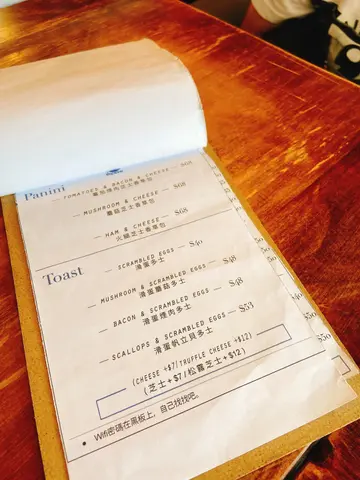 Panini
TOMATOES & BACON & CHEESE - $68
蕃茄煙肉芝士香草包
MUSHROOM & CHEESE - $68
蘑菇芝士香草包
HAM & CHEESE - $68
火腿芝士香草包
Toast
SCRAMBLED EGGS - $40
滑蛋多士
MUSHROOM & SCRAMBLED EGGS - $48
滑蛋蘑菇多士
BACON & SCRAMBLED EGGS - $48
滑蛋煙肉多士
SCALLOPS & SCRAMBLED EGGS - $53
滑蛋帆立貝多士
(CHEESE +$7/TRUFFLE CHEESE +$12)
(芝士+$7/松露芝士+$12)
• Wifi密碼在黑板上，自己找找吧。